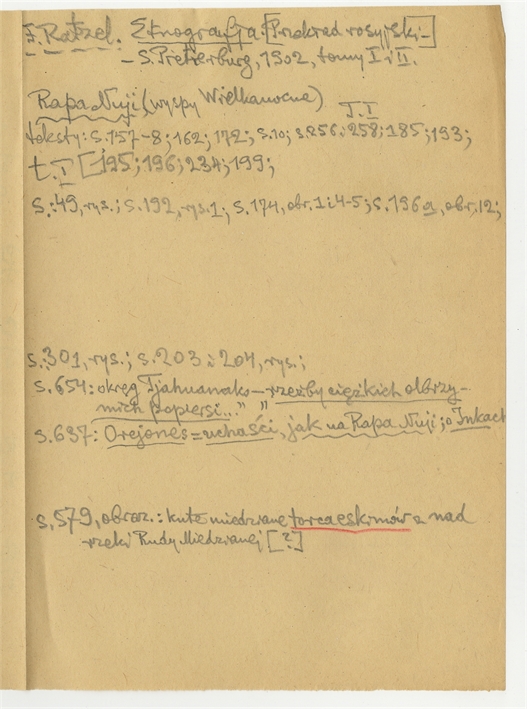 F. Ratzel. Etnografja. [Przekład rosyjski –
– S. Pietierburg, 1902, tomy I i II.
Rapa Nuji (wyspy Wielkanocne) T. I
teksty: s. 157-8; 162; 172; s. 10; s. 256 i 258; 185; 193;
t. I [195; 196; 234; 199;
s.: 49, rys.; s. 192, rys. 1; s. 174, obr. 1 i 4-5; s. 196a, obr. 12;
s.: 301, rys.; s. 203 i 204, rys.;
s. 654: okręg Tjahuanako – rzeźby ciężkich olbrzy-
mich popiersi..." "
s. 637: Orejones = uchaści, jak na Rapa Nuji; o Inkach
s. 579, obraz.: kute miedziane eskimów z nad
rzeki Rudy Miedzianej [?]